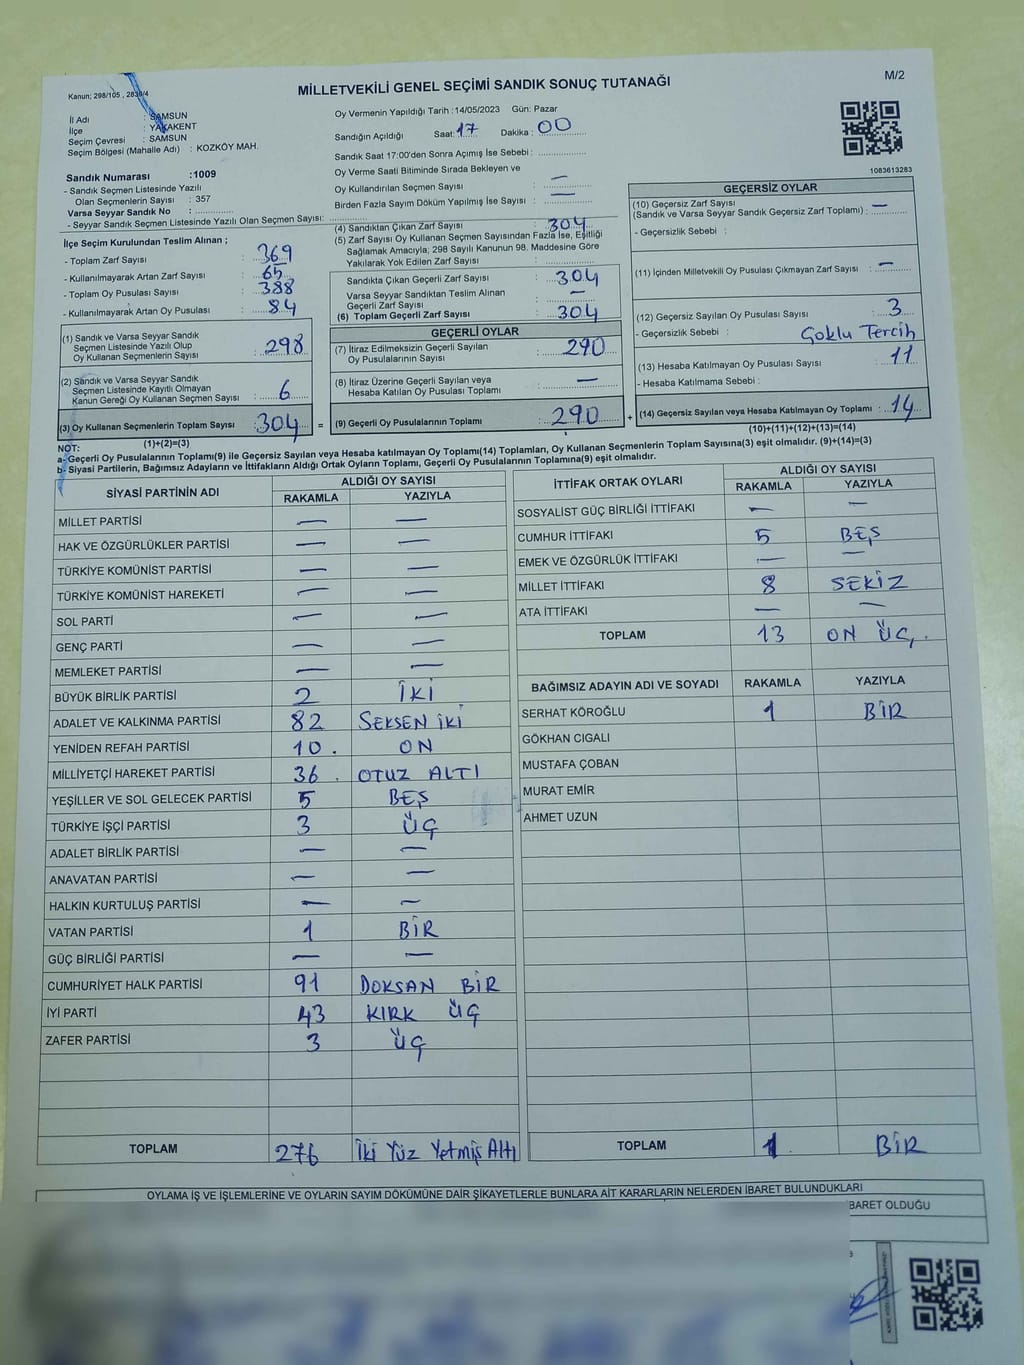 M/2
Kanun; 298/105 , 2839/4
MİLLETVEKİLİ GENEL SEÇİMİ SANDIK SONUÇ TUTANAĞI
İl Adı : SAMSUN
İlçe : YAKAKENT
Seçim Çevresi : SAMSUN
Seçim Bölgesi (Mahalle Adı) : KOZKÖY MAH.
Oy Vermenin Yapıldığı Tarih : 14/05/2023 Gün: Pazar
Sandığın Açıldığı Saat: 17 Dakika : 00
Sandık Saat 17:00'den Sonra Açımış İse Sebebi :
Oy Verme Saati Bitiminde Sırada Bekleyen ve
Oy Kullandırılan Seçmen Sayısı : —
Birden Fazla Sayım Döküm Yapılmış İse Sayısı : —
1083613283
Sandık Numarası :1009
- Sandık Seçmen Listesinde Yazılı
Olan Seçmenlerin Sayısı : 357
Varsa Seyyar Sandık No :
- Seyyar Seçmen Listesinde Yazılı Olan Seçmen Sayısı:
İlçe Seçim Kurulundan Teslim Alınan ;
- Toplam Zarf Sayısı : 369
- Kullanılmayarak Artan Zarf Sayısı : 65
- Toplam Oy Pusulası Sayısı : 388
- Kullanılmayarak Artan Oy Pusulası : 84
(1) Sandık ve Varsa Seyyar Sandık
Seçmen Listesinde Yazılı Olup
Oy Kullanan Seçmenlerin Sayısı : 298
(2) Sandık ve Varsa Seyyar Sandık
Seçmen Listesinde Kayıtlı Olmayan
Kanun Gereği Oy Kullanan Seçmen Sayısı : 6
(3) Oy Kullanan Seçmenlerin Toplam Sayısı : 304
(1)+(2)=(3)
(4) Sandıktan Çıkan Zarf Sayısı : 304
(5) Zarf Sayısı Oy Kullanan Seçmen Sayısından Fazla İse, Eşitliği
Sağlamak Amacıyla; 298 Sayılı Kanunun 98. Maddesine Göre
Yakılarak Yok Edilen Zarf Sayısı :
Sandıkta Çıkan Geçerli Zarf Sayısı : 304
Varsa Seyyar Sandıktan Teslim Alınan
Geçerli Zarf Sayısı : —
(6) Toplam Geçerli Zarf Sayısı : 304
GEÇERLİ OYLAR
(7) İtiraz Edilmeksizin Geçerli Sayılan
Oy Pusulalarının Sayısı : 290
(8) İtiraz Üzerine Geçerli Sayılan veya
Hesaba Katılan Oy Pusulası Toplamı : —
= (9) Geçerli Oy Pusulalarının Toplamı : 290
GEÇERSİZ OYLAR
(10) Geçersiz Zarf Sayısı
(Sandık ve Varsa Seyyar Sandık Geçersiz Zarf Toplamı) : —
- Geçersizlik Sebebi :
(11) İçinden Milletvekili Oy Pusulası Çıkmayan Zarf Sayısı : —
(12) Geçersiz Sayılan Oy Pusulası Sayısı : 3
- Geçersizlik Sebebi : Çoklu Tercih
(13) Hesaba Katılmayan Oy Pusulası Sayısı : 11
- Hesaba Katılmama Sebebi :
+ (14) Geçersiz Sayılan veya Hesaba Katılmayan Oy Toplamı : 14
(10)+(11)+(12)+(13)=(14)
NOT:
a- Geçerli Oy Pusulalarının Toplamı(9) ile Geçersiz Sayılan veya Hesaba katılmayan Oy Toplamı(14) Toplamları, Oy Kullanan Seçmenlerin Toplam Sayısına(3) eşit olmalıdır. (9)+(14)=(3)
b- Siyasi Partilerin, Bağımsız Adayların ve İttifakların Aldığı Ortak Oyların Toplamı, Geçerli Oy Pusulalarının Toplamına(9) eşit olmalıdır.
SİYASİ PARTİNİN ADI ALDIĞI OY SAYISI
RAKAMLA YAZIYLA
MİLLET PARTİSİ — —
HAK VE ÖZGÜRLÜKLER PARTİSİ — —
TÜRKİYE KOMÜNİST PARTİSİ — —
TÜRKİYE KOMÜNİST HAREKETİ — —
SOL PARTİ — —
GENÇ PARTİ — —
MEMLEKET PARTİSİ — —
BÜYÜK BİRLİK PARTİSİ 2 İKİ
ADALET VE KALKINMA PARTİSİ 82 SEKSEN İKİ
YENİDEN REFAH PARTİSİ 10. ON
MİLLİYETÇİ HAREKET PARTİSİ 36. OTUZ ALTI
YEŞİLLER VE SOL GELECEK PARTİSİ 5 BEŞ
TÜRKİYE İŞÇİ PARTİSİ 3 ÜÇ
ADALET BİRLİK PARTİSİ — —
ANAVATAN PARTİSİ — —
HALKIN KURTULUŞ PARTİSİ — —
VATAN PARTİSİ 1 BİR
GÜÇ BİRLİĞİ PARTİSİ — —
CUMHURİYET HALK PARTİSİ 91 DOKSAN BİR
İYİ PARTİ 43 KIRK ÜÇ
ZAFER PARTİSİ 3 ÜÇ
TOPLAM 276 İki Yüz Yetmiş Altı
İTTİFAK ORTAK OYLARI ALDIĞI OY SAYISI
RAKAMLA YAZIYLA
SOSYALİST GÜÇ BİRLİĞİ İTTİFAKI — —
CUMHUR İTTİFAKI 5 BEŞ
EMEK VE ÖZGÜRLÜK İTTİFAKI — —
MİLLET İTTİFAKI 8 SEKİZ
ATA İTTİFAKI — —
TOPLAM 13 ON ÜÇ.
BAĞIMSIZ ADAYIN ADI VE SOYADI RAKAMLA YAZIYLA
SERHAT KÖROĞLU 1 BİR
GÖKHAN CIGALI
MUSTAFA ÇOBAN
MURAT EMİR
AHMET UZUN
TOPLAM 1 BİR
OYLAMA İŞ VE İŞLEMLERİNE VE OYLARIN SAYIM DÖKÜMÜNE DAİR ŞİKAYETLERLE BUNLARA AİT KARARLARIN NELERDEN İBARET BULUNDUKLARI
BARET OLDUĞU